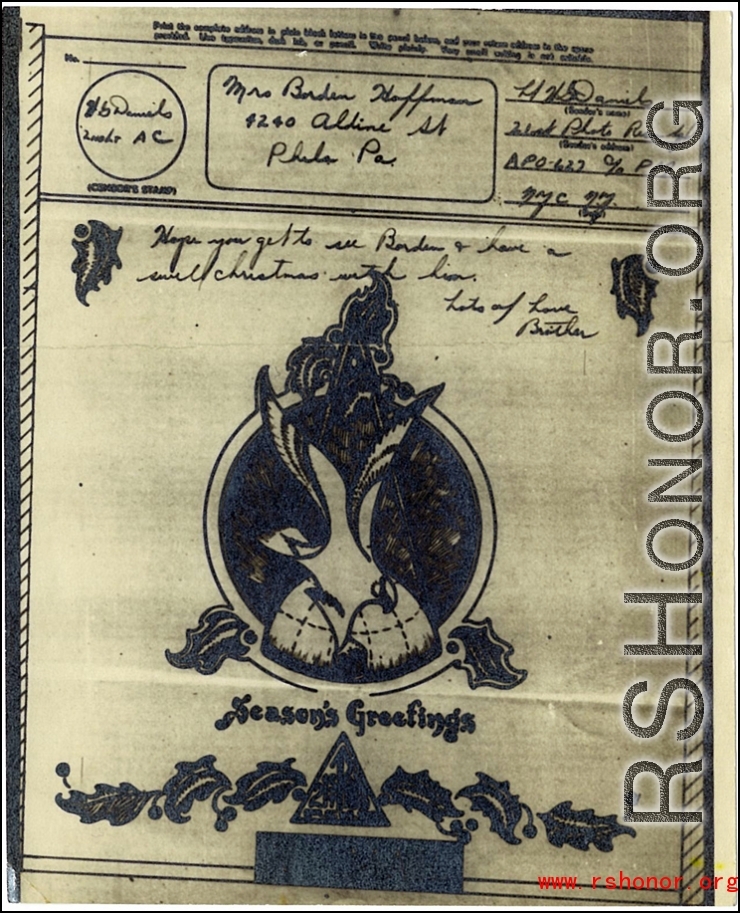 Print the complete address in plain block letters in the panel below, and your return address in the space
provided. Use typewriter, dark ink, or pencil. Write plainly. Very small writing is not suitable.
No.
W G Daniels
2nd Lt AC
(CENSOR'S STAMP)
Mrs Borden Hoffman
4240 Aldine St
Phila Pa
Lt W G Daniels
(Sender's name)
21st Photo
(Sender's address)
APO-627 c/o P
NYC NY
Hope you get to see Borden & have a
swell christmas with him.
Lots of Love
Brother
Season's Greetings
21
RSHONOR.ORG
www.rshonor.org